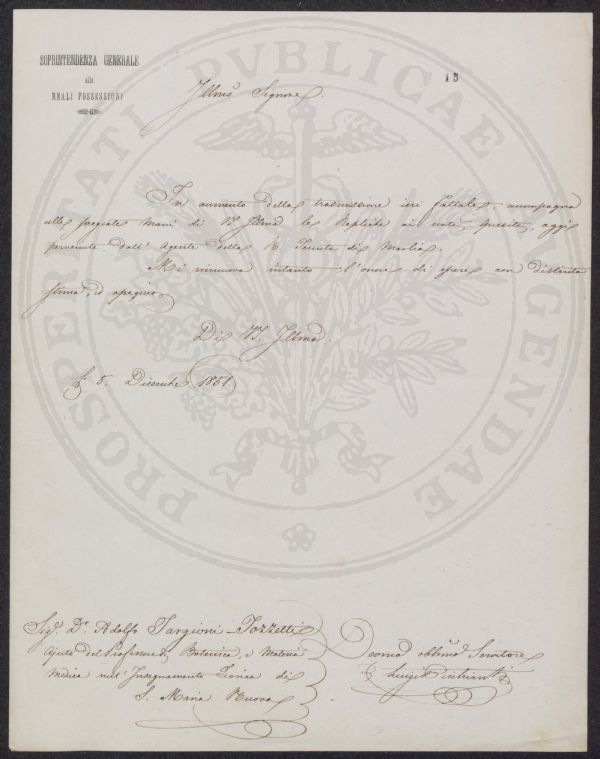 SOPRINTENDENZA GENERALE
alle
REALI POSSESSIONI
15
Illmo Signore
In aumento della trasmissione ieri fattale, accompagno
alle pregiate Mani di V.S. Illma le Repliche ai noti Quesiti, oggi
pervenute dall' Agente della R. Tenuta di Marlia.
Mi rinnuova intanto l'onore di essere con distinta
stima, ed ossequio
Di V.S. Illma
5. Dicembre 1851.
Sigr. Dr. Adolfo Targioni-Tozzetti
Ajuto del Professore di Botanica, e Materia
Medica nell' Insegnamento Teorico di
S. Maria Nuova
Devmo obblmo Servitore
Luigi
PROSPERITATI PVBLICAE AVGENDAE